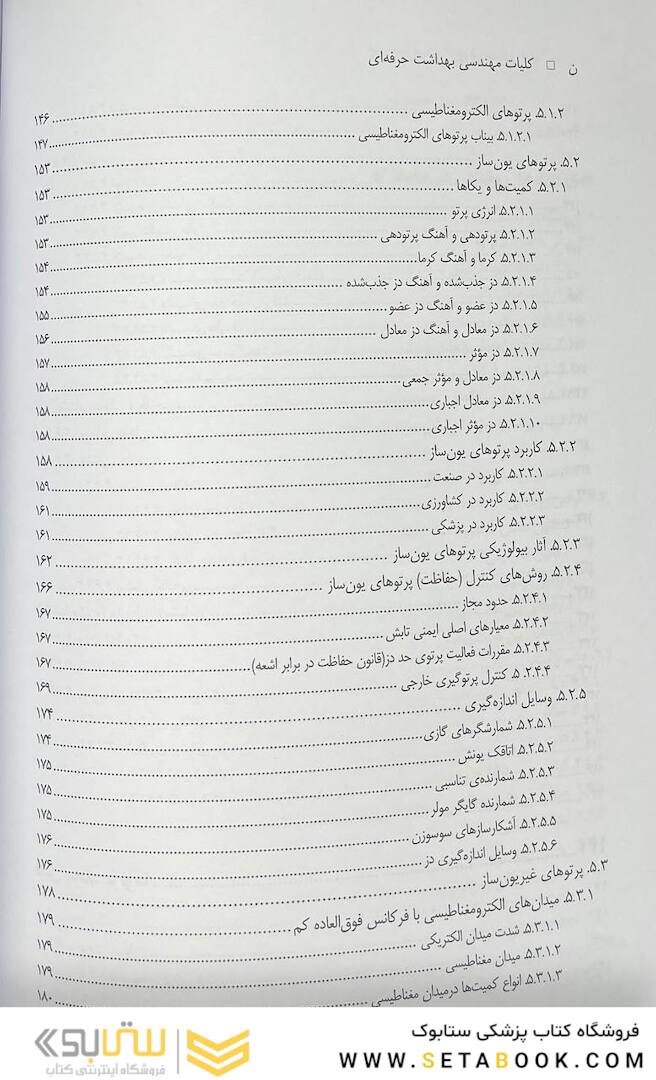 ن □ کلیات مهندسی بهداشت حرفه‌ای
۵.۱.۲. پرتوهای الکترومغناطیسی ۱۴۶
۵.۱.۲.۱. بیناب پرتوهای الکترومغناطیسی ۱۴۷
۵.۲. پرتوهای یون‌ساز ۱۵۳
۵.۲.۱. کمیت‌ها و یکاها ۱۵۳
۵.۲.۱.۱. انرژی پرتو ۱۵۳
۵.۲.۱.۲. پرتودهی و آهنگ پرتودهی ۱۵۳
۵.۲.۱.۳. کرما و آهنگ کرما ۱۵۴
۵.۲.۱.۴. دز جذب‌شده و آهنگ دز جذب‌شده ۱۵۴
۵.۲.۱.۵. دز عضو و آهنگ دز عضو ۱۵۵
۵.۲.۱.۶. دز معادل و آهنگ دز معادل ۱۵۶
۵.۲.۱.۷. دز مؤثر ۱۵۷
۵.۲.۱.۸. دز معادل و مؤثر جمعی ۱۵۸
۵.۲.۱.۹. دز معادل اجباری ۱۵۸
۵.۲.۱.۱۰. دز مؤثر اجباری ۱۵۸
۵.۲.۲. کاربرد پرتوهای یون‌ساز ۱۵۸
۵.۲.۲.۱. کاربرد در صنعت ۱۵۹
۵.۲.۲.۲. کاربرد در کشاورزی ۱۶۱
۵.۲.۲.۳. کاربرد در پزشکی ۱۶۱
۵.۲.۳. آثار بیولوژیکی پرتوهای یون‌ساز ۱۶۲
۵.۲.۴. روش‌های کنترل (حفاظت) پرتوهای یون‌ساز ۱۶۶
۵.۲.۴.۱. حدود مجاز ۱۶۷
۵.۲.۴.۲. معیارهای اصلی ایمنی تابش ۱۶۷
۵.۲.۴.۳. مقررات فعالیت پرتوی حد دز(قانون حفاظت در برابر اشعه) ۱۶۷
۵.۲.۴.۴. کنترل پرتوگیری خارجی ۱۶۹
۵.۲.۵. وسایل اندازه‌گیری ۱۷۴
۵.۲.۵.۱. شمارشگرهای گازی ۱۷۴
۵.۲.۵.۲. اتاقک یونش ۱۷۵
۵.۲.۵.۳. شمارنده‌ی تناسبی ۱۷۵
۵.۲.۵.۴. شمارنده گایگر مولر ۱۷۵
۵.۲.۵.۵. آشکارسازهای سوسوزن ۱۷۶
۵.۲.۵.۶. وسایل اندازه‌گیری دز ۱۷۶
۵.۳. پرتوهای غیریون‌ساز ۱۷۸
۵.۳.۱. میدان‌های الکترومغناطیسی با فرکانس فوق‌العاده کم ۱۷۹
۵.۳.۱.۱. شدت میدان الکتریکی ۱۷۹
۵.۳.۱.۲. میدان مغناطیسی ۱۷۹
۵.۳.۱.۳. انواع کمیت‌ها درمیدان مغناطیسی ۱۸۰
فروشگاه کتاب پزشکی ستابوک
WWW.SETABOOK.COM
ستابوک
فروشگاه اینترنتی کتاب